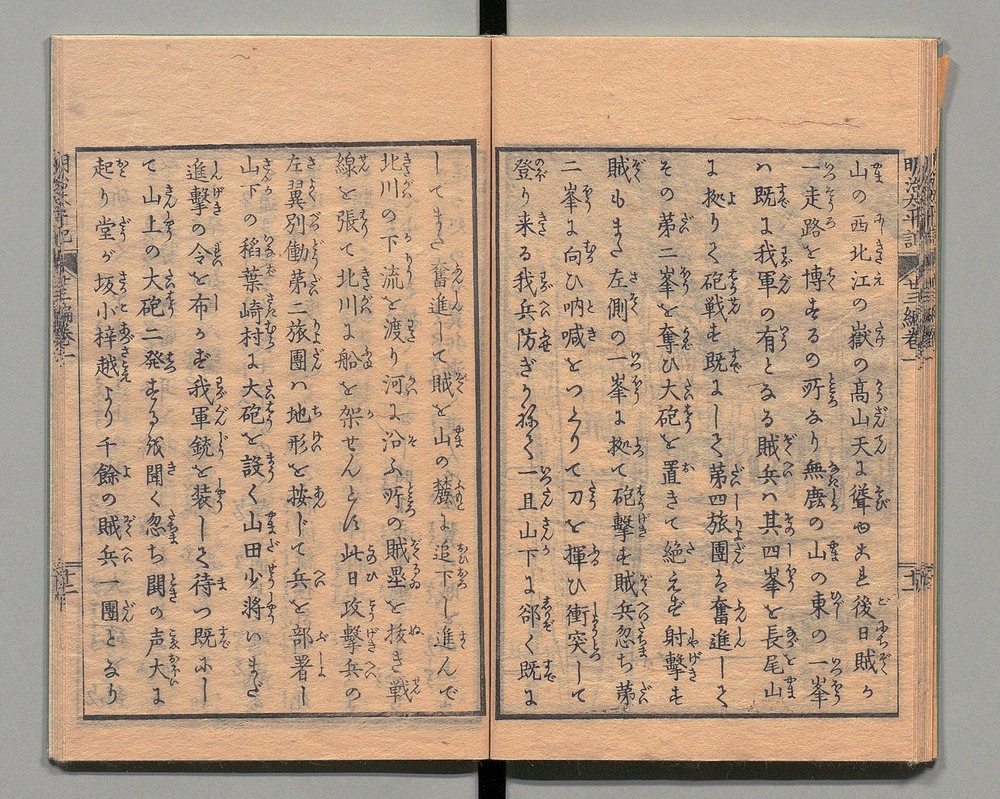 山の西北江の嶽の高山天に聳也是後日賊が
一走路を博するの所なり無鹿の山の東の一峯
ハ既に我軍の有となる賊兵ハ其四峯と長尾山
に拠りて砲戦す既にして第四旅團奮進して
その第二峯を奪ひ大砲を置きて絶えず射撃す
賊もまた左側の一峯に拠て砲撃す賊兵忽ち第
二峯に向ひ吶喊をつくりて刀を揮ひ衝突して
登り来る我兵防ぎ兼て一旦山下に郤く既に
してまた奮進して賊を山の麓に追下し進んで
北川の下流を渡り河に沿ふ所の賊塁を抜き戦
線を張て北川に船を架せんとす此日攻撃兵の
左翼別働第二旅團ハ地形を按じて兵を部署し
山下の稻葉崎村に大砲を設く山田少将いまだ
進撃の令を布かず我軍銃を装して待つ既にし
て山上の大砲二発するを聞く忽ち鬨の声大に
起り堂が坂小梓越より千餘の賊兵一團となり
明治太平記
廿三編卷一
十二